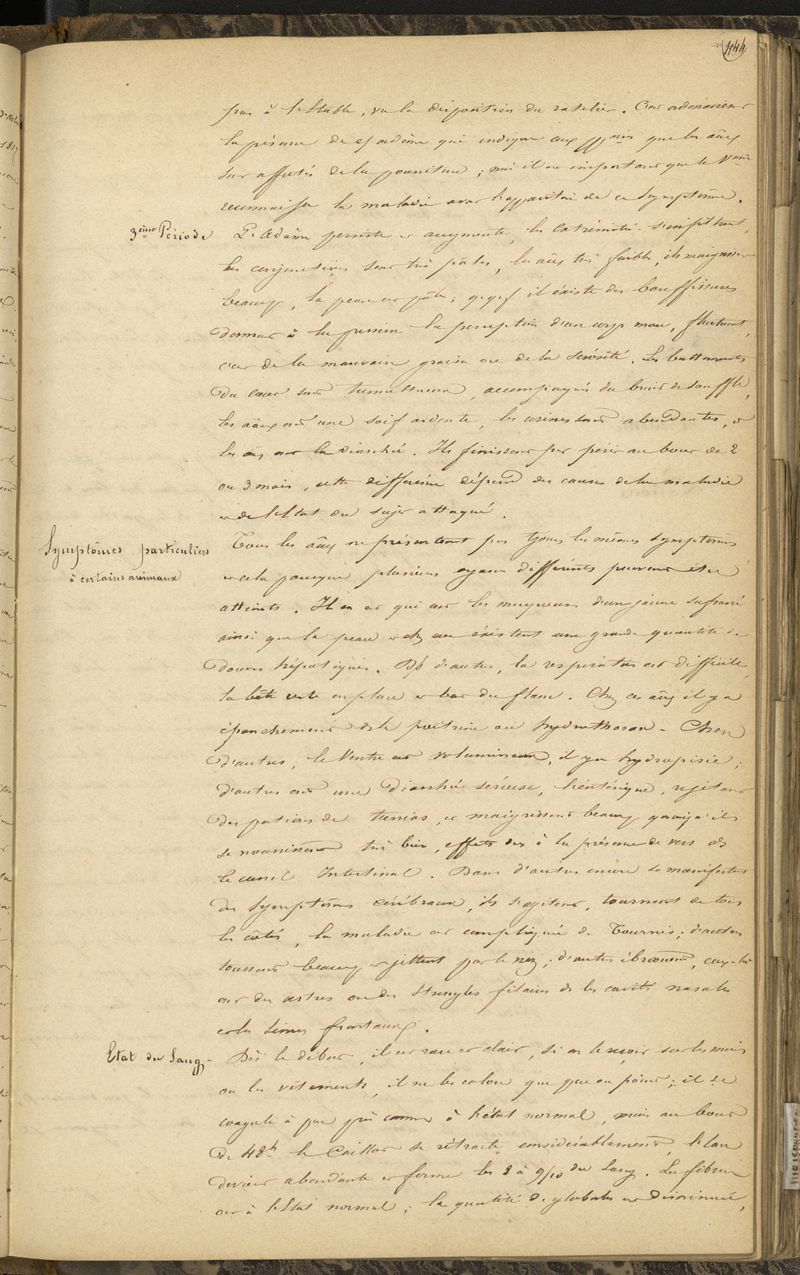 444
pas à l'étable, vu la disposition du ratelier. C'est ordinairement
la présence de cet œdème qui indique aux ppaires que les aux
sont affectés de la pourriture ; mais il est important que le Vaire
reconnaisse la maladie avant l'apparition de ce symptôme.
3ème Période L'œdème persiste et augmente, les extrémités s'infiltrent,
les conjonctives sont très pâles, les aux très faibles, ils maigrissent
beaucoup, la peau est pâle ; qqf il existe des bouffissures
donnant à la pression la perception d'un corps mou, fluctuant,
c'est de la mauvaise graisse ou de la sérosité. Les battements
du cœur sont tumultueux, accompagnés du bruit de souffle,
les aux ont une soif ardente, les urines sont abondantes, et
les aux ont la diarrhée. Ils finissent par périr au bout de 2
ou 3 mois, cette différence dépend des causes de la maladie
et de l'état du sujet attaqué.
Symptômes particuliers
à certains animaux
Tous les aux ne présentent pas tjours les mêmes symptômes
et cela parceque plusieurs organes différents peuvent être
atteints. Il en est qui ont les muqueuses d'un jaune safrané
ainsi que la peau et chez eux existent une grande quantité de
douves hépatiques. D'autres, la respiration est difficile,
la bête reste en place et bat du flanc. Chez ces aux il y a
épanchement ds la poitrine ou hydrothorax. Chez
d'autres, le ventre est volumineux, il y a hydropisie ;
d'autres ont une diarrhée séreuse, lientérique, rejetant
des portions de tœnias, et maigrissent beaucoup quoiqu'ils
se nourrissent très bien, effets dus à la présence de vers ds
le canal intestinal. Dans d'autres encore se manifestent
des symptômes cérébraux, ils s'agitent, tournent de tous
les côtés, la maladie est compliquée de Tournis ; d'autres
toussent beaucoup et jettent par le nez ; d'autres ébrouent,
ont des œstres ou des strongles filaires ds les cavités nasales
et les sinus frontaux.
Etat du Sang. Dès le début, il est rare et clair, si on le reçoit sur les mains
ou les vêtements, il ne les colore que peu ou point ; il se
coagule à peu près comme à l'état normal, mais au bout
de 48h le caillot se rétracte considérablement, l'eau
devient abondante et forme les 8 à 9/10 du sang. La fibrine
est à l'état normal ; la quantité de globules est diminuée,